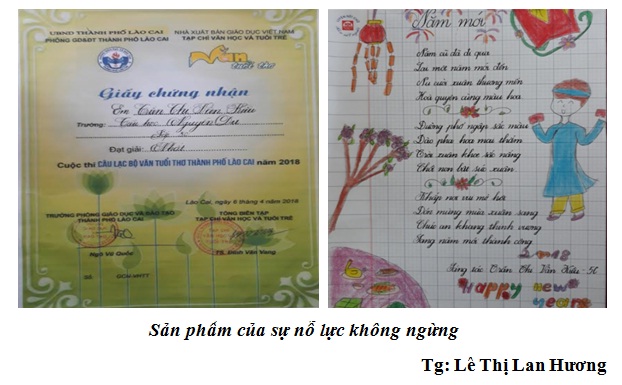 UBND THÀNH PHỐ LÀO CAI
PHÒNG GD&ĐT THÀNH PHỐ LÀO CAI
NHÀ XUẤT BẢN GIÁO DỤC VIỆT NAM
TẠP CHÍ VĂN HỌC VÀ TUỔI TRẺ
Văn
tuổi thơ
Giấy chứng nhận
Em: Trần Thị Vân Kiều
Trường: Tiểu học Nguyễn Du
Đạt giải: Nhất
Cuộc thi CÂU LẠC BỘ VĂN TUỔI THƠ THÀNH PHỐ LÀO CAI năm 2018
Lào Cai, ngày 6 tháng 4 năm 2018
TRƯỞNG PHÒNG GIÁO DỤC VÀ ĐÀO TẠO
THÀNH PHỐ LÀO CAI
Ngô Vũ Quốc
TỔNG BIÊN TẬP
TẠP CHÍ VĂN HỌC VÀ TUỔI TRẺ
TS. Đinh Văn Vang
Số: GCN-VHTT
Năm mới
Năm cũ đã đi qua
Lại một năm mới đến
Nụ cười xuân thương mến
Hoà quyện cùng màu hoa
Đường phố ngập sắc màu
Đào phai hoa mau thắm
Trời xuân khoe sắc nắng
Chồi non bật sức xuân
Nhấp nơi vui mê hơi
Đón mừng mùa xuân sang
Chúc an khang thịnh vượng
Sang năm mới thành công
2018
Sáng tác: Trần Thị Vân Kiều - 5C
Happy new
years
Sản phẩm của sự nỗ lực không ngừng
Tg: Lê Thị Lan Hương